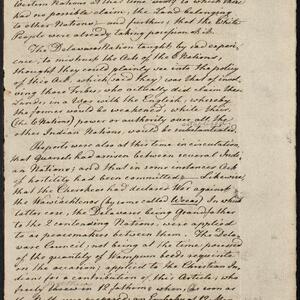 Western Nations at that time would to which these
had no possible claim, the Land belonged
to other Nations: and further; that the White
People were already taking possession of it.
The Delaware Nation taught by sad experi-
ence, to mistrust the Acts of the 6 Nations,
thought they could plainly see into the policy
of this Act, which (said they) was that of invol-
ving those Tribes, who actually did claim these
Lands, in a War with the English, whereby
the former would be weakened, while their
(the 6 Nations) power or authority over all the
other Indian Nations, would be substantiated.
Reports were also at this time in circulation
that Quarrels had arisen between several Indi-
an Nations; and that in some instances Acts
of hostility had been committed. Likewise
that the Cherokees had declared War against
the Wawiachtenos (by some called Weas) In which
latter case, the Delawares being Grandfather
to the 2 contending Nations, were applied
to as peacemakers between them. The Dela-
ware Council, not being at the time, possessed
of the quantity of Wampum beeds requisite
on the occasion; applied to the Christian In-
dians for a contribution of this Article, who
freely threw in 12 fathoms; when, as soon as